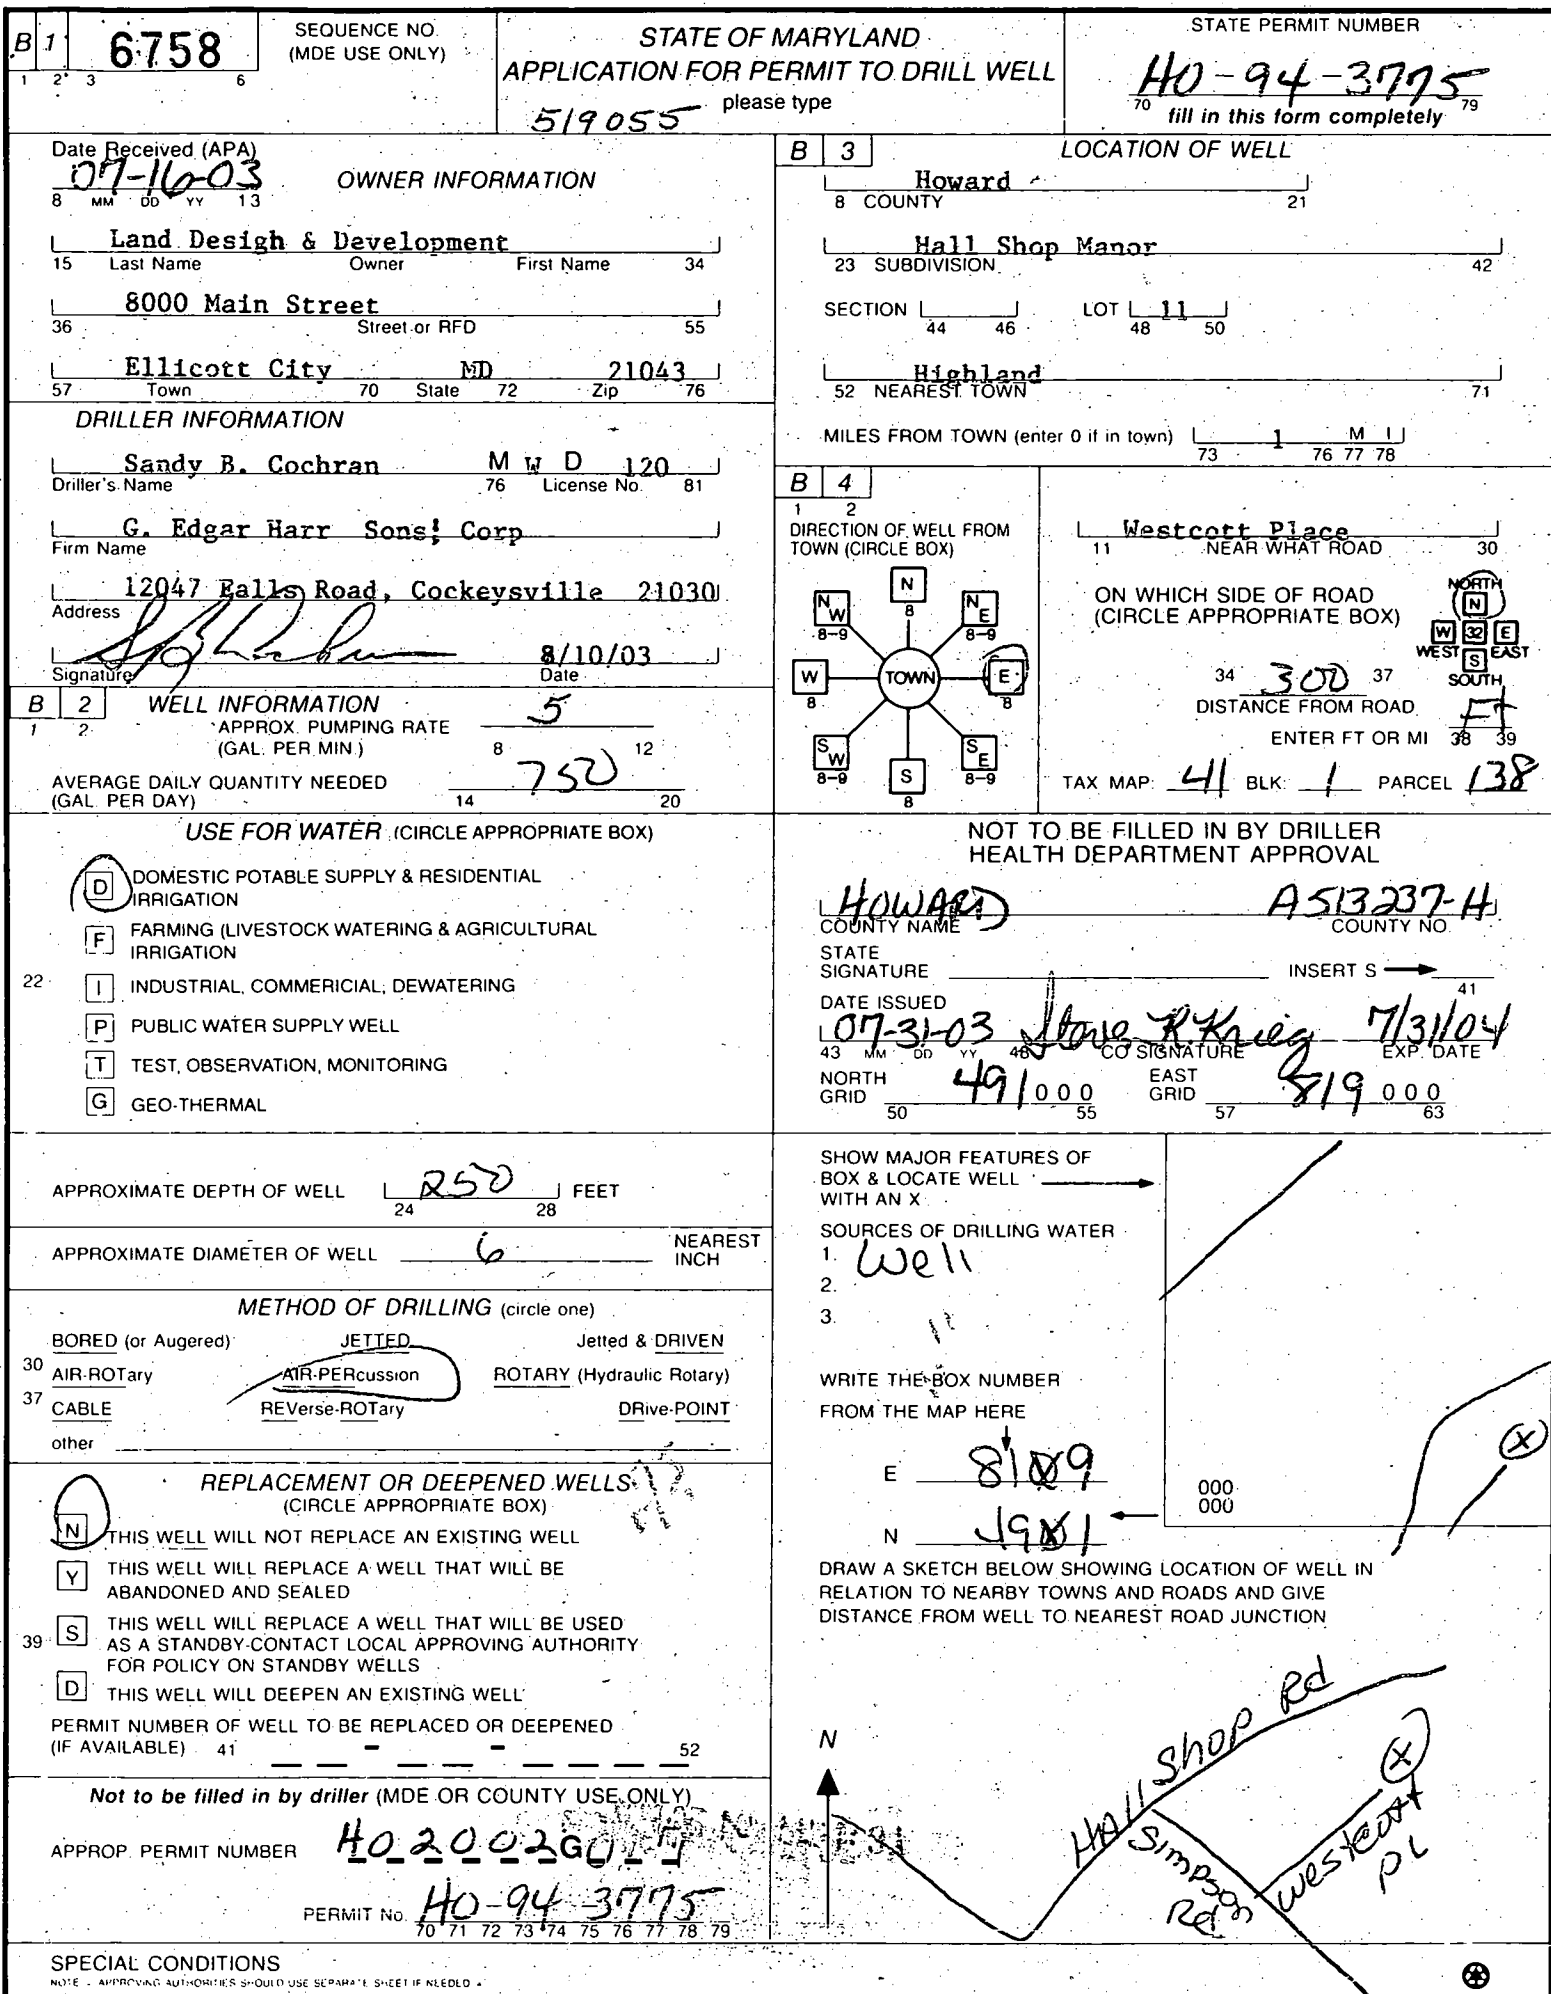 B 1 6758
1 2 3 6
SEQUENCE NO.
(MDE USE ONLY)
STATE OF MARYLAND
APPLICATION FOR PERMIT TO DRILL WELL
please type
519055
STATE PERMIT NUMBER
HO-94-3775
70 79
fill in this form completely
Date Received (APA)
07-16-03
8 MM DD YY 13
OWNER INFORMATION
Land Desigh & Development
15 Last Name Owner First Name 34
8000 Main Street
36 Street or RFD 55
Ellicott City MD 21043
57 Town 70 State 72 Zip 76
DRILLER INFORMATION
Sandy B. Cochran M W D 120
Driller's Name 76 License No. 81
G. Edgar Harr Sons' Corp
Firm Name
12047 Falls Road, Cockeysville 21030
Address
8/10/03
Signature Date
B 2 WELL INFORMATION
1 2
APPROX. PUMPING RATE 5
(GAL. PER MIN.) 8 12
AVERAGE DAILY QUANTITY NEEDED 750
(GAL. PER DAY) 14 20
USE FOR WATER (CIRCLE APPROPRIATE BOX)
D DOMESTIC POTABLE SUPPLY & RESIDENTIAL
IRRIGATION
F FARMING (LIVESTOCK WATERING & AGRICULTURAL
IRRIGATION
22 I INDUSTRIAL, COMMERICIAL, DEWATERING
P PUBLIC WATER SUPPLY WELL
T TEST, OBSERVATION, MONITORING
G GEO-THERMAL
APPROXIMATE DEPTH OF WELL 250 FEET
24 28
APPROXIMATE DIAMETER OF WELL 6 NEAREST
INCH
METHOD OF DRILLING (circle one)
BORED (or Augered) JETTED Jetted & DRIVEN
30 AIR-ROTary AIR-PERcussion ROTARY (Hydraulic Rotary)
37 CABLE REVerse-ROTary DRive-POINT
other
REPLACEMENT OR DEEPENED WELLS
(CIRCLE APPROPRIATE BOX)
N THIS WELL WILL NOT REPLACE AN EXISTING WELL
Y THIS WELL WILL REPLACE A WELL THAT WILL BE
ABANDONED AND SEALED
39 S THIS WELL WILL REPLACE A WELL THAT WILL BE USED
AS A STANDBY-CONTACT LOCAL APPROVING AUTHORITY
FOR POLICY ON STANDBY WELLS
D THIS WELL WILL DEEPEN AN EXISTING WELL
PERMIT NUMBER OF WELL TO BE REPLACED OR DEEPENED
(IF AVAILABLE) 41 - - 52
Not to be filled in by driller (MDE OR COUNTY USE ONLY)
APPROP. PERMIT NUMBER HO2002G
PERMIT No. HO-94-3775
70 71 72 73 74 75 76 77 78 79
SPECIAL CONDITIONS
NOTE - APPROVING AUTHORITIES SHOULD USE SEPARATE SHEET IF NEEDED
B 3 LOCATION OF WELL
Howard
8 COUNTY 21
Hall Shop Manor
23 SUBDIVISION 42
SECTION LOT 11
44 46 48 50
Highland
52 NEAREST TOWN 71
MILES FROM TOWN (enter 0 if in town) 1 M I
73 76 77 78
B 4
1 2
DIRECTION OF WELL FROM
TOWN (CIRCLE BOX)
N
8
NW
8-9
NE
8-9
W
8
TOWN
E
8
SW
8-9
S
8
SE
8-9
Westcott Place
11 NEAR WHAT ROAD 30
ON WHICH SIDE OF ROAD
(CIRCLE APPROPRIATE BOX)
NORTH
N
W 32 E
WEST S EAST
SOUTH
34 300 37
DISTANCE FROM ROAD
Ft
ENTER FT OR MI 38 39
TAX MAP: 41 BLK: 1 PARCEL 138
NOT TO BE FILLED IN BY DRILLER
HEALTH DEPARTMENT APPROVAL
HOWARD A513237-H
COUNTY NAME COUNTY NO.
STATE
SIGNATURE INSERT S
41
DATE ISSUED
07-31-03 Steve R. Krieg 7/31/04
43 MM DD YY 48 CO SIGNATURE EXP. DATE
NORTH
GRID 491 000
50 55
EAST
GRID 819 000
57 63
SHOW MAJOR FEATURES OF
BOX & LOCATE WELL
WITH AN X
SOURCES OF DRILLING WATER
1. Well
2.
3.
WRITE THE BOX NUMBER
FROM THE MAP HERE
E 819
N 491
000
000
X
DRAW A SKETCH BELOW SHOWING LOCATION OF WELL IN
RELATION TO NEARBY TOWNS AND ROADS AND GIVE
DISTANCE FROM WELL TO NEAREST ROAD JUNCTION
N
HAll Shop Rd
Simpson
Rd
Westcott
PL
X